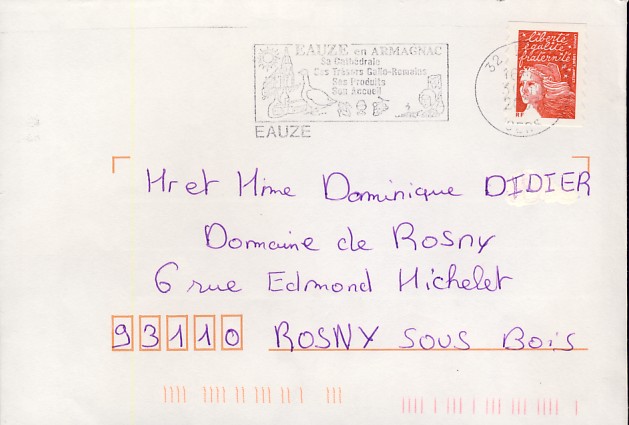 EAUZE en ARMAGNAC
Sa Cathédrale
Ses Trésors Gallo-Romains
Ses Produits
Son Accueil
EAUZE
liberté
égalité
fraternité
RF
32
GERS
Mr et Mme Dominique DIDIER
Domaine de Rosny
6 rue Edmond Michelet
93110 ROSNY SOUS BOIS